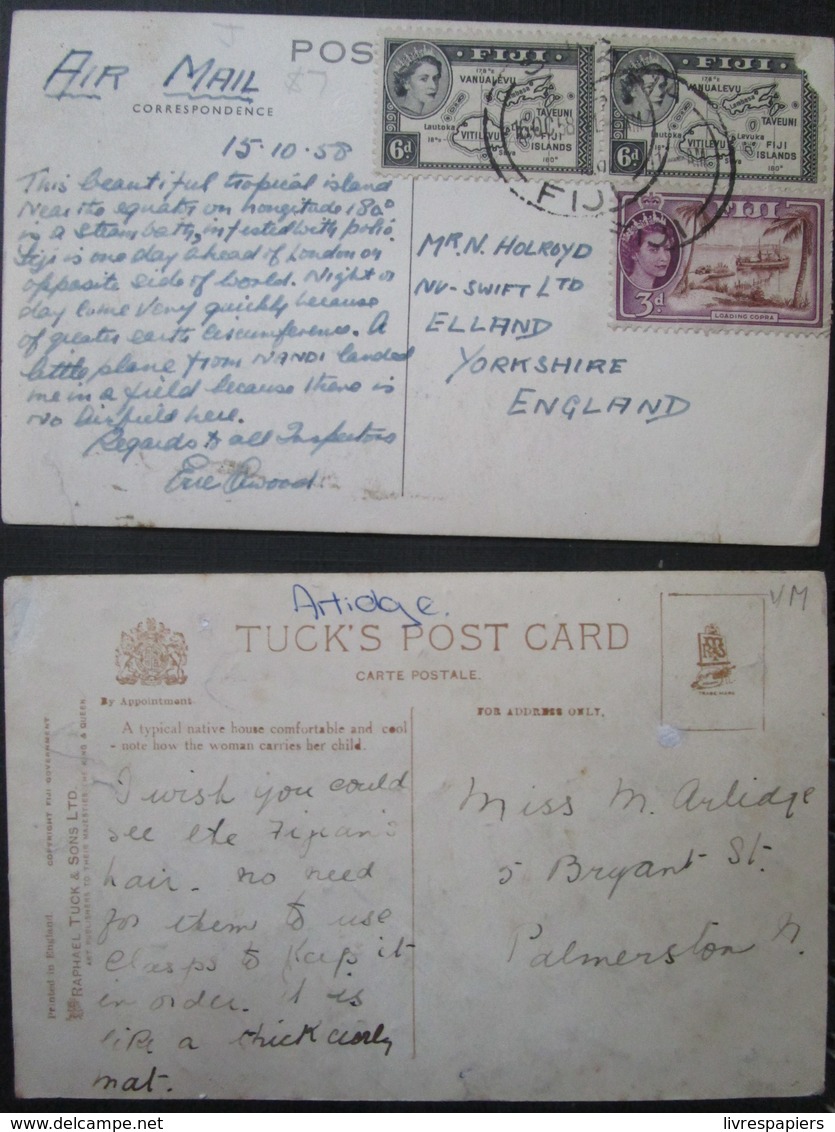 J
AIR MAIL
POS
CORRESPONDENCE
15-10-58
This beautiful tropical island
Near the equator on Longitude 180°
is a steam bath, infested with polio.
Fiji is one day ahead of London on
opposite side of world. Night or
day come very quickly because
of greater earth circumference. A
little plane from NANDI landed
me in a field because there is
no airfield here.
Regards to all Inspectors
Eric
FIJI
178°E
VANUALEVU
Lambasa
TAVEUNI
Lautoka
Levuka
18°S
VITILEVU
FIJI
ISLANDS
Suva
180°
6d
FIJI
178°E
VANUALEVU
Lambasa
TAVEUNI
Lautoka
Levuka
18°S
VITILEVU
FIJI
ISLANDS
180°
6d
OC 58
FIJI
FIJI
3d
LOADING COPRA
MR. N. HOLROYD
NU-SWIFT LTD
ELLAND
YORKSHIRE
ENGLAND
Arlidge.
VM
TUCK'S POST CARD
CARTE POSTALE.
By Appointment
FOR ADDRESS ONLY.
TRADE MARK
A typical native house comfortable and cool
- note how the woman carries her child.
I wish you could
see the Fijian's
hair. no need
for them to use
Clasps to keep it
in order. It is
like a thick curly
mat.
Miss M. Arlidge
5 Bryant St.
Palmerston N.
Printed in England. COPYRIGHT FIJI GOVERNMENT
RAPHAEL TUCK & SONS LTD.
ART PUBLISHERS TO THEIR MAJESTIES THE KING & QUEEN.
livrespapiers